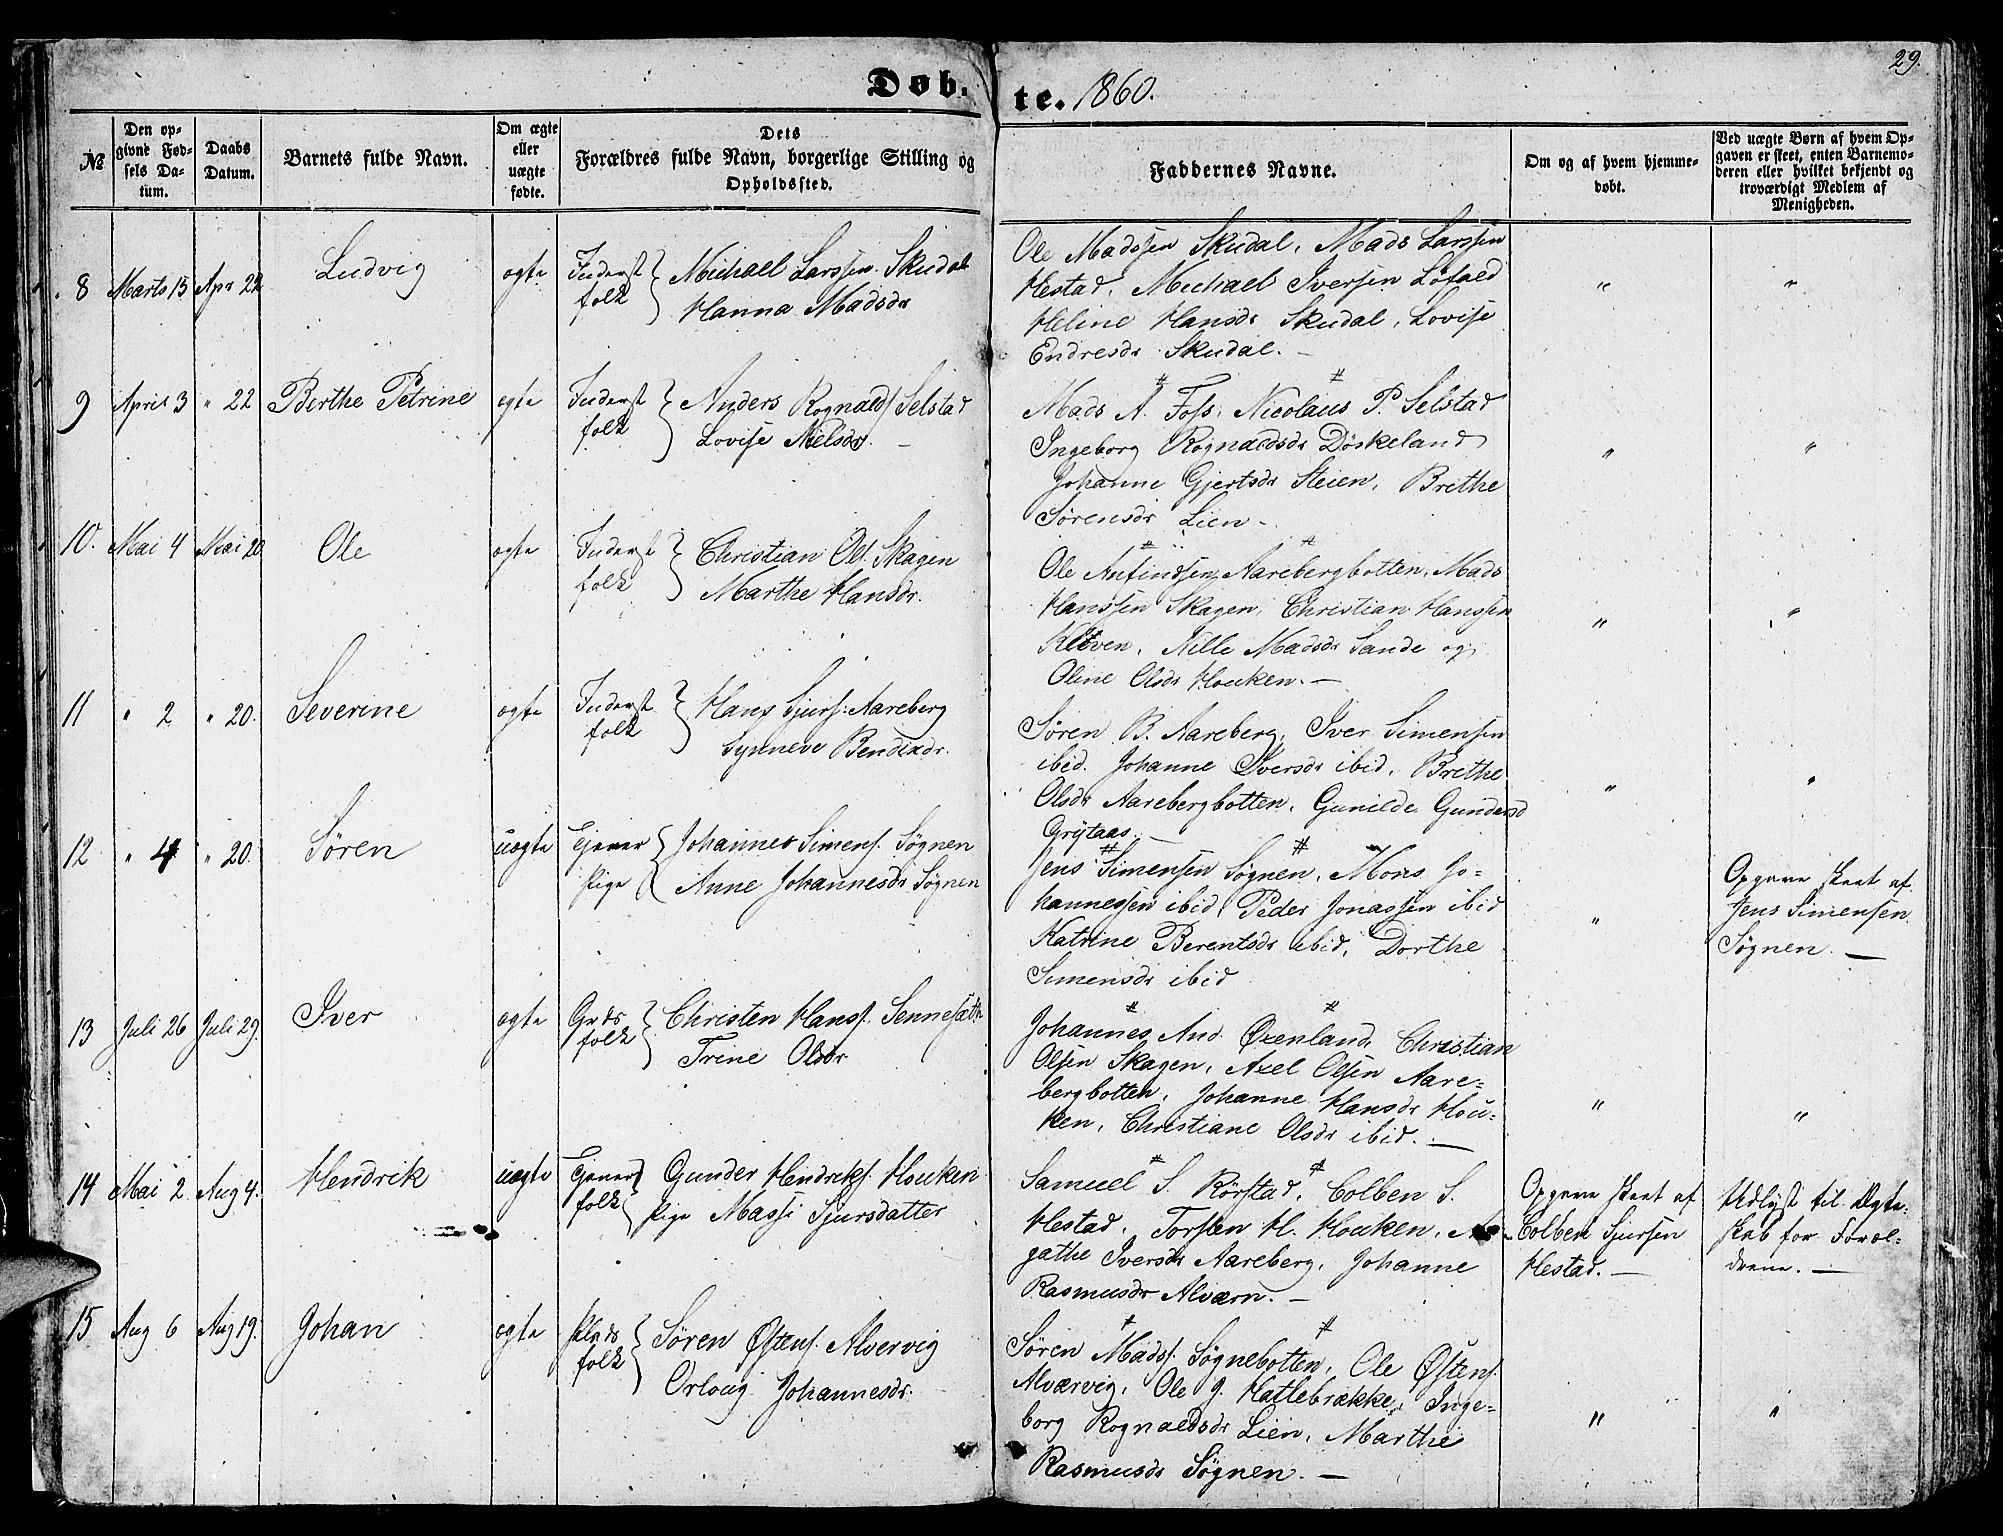 29.
Døb. te. 1860.
№
Den op-
givne Fød-
sels Da-
tum.
Daabs
Datum.
Barnets fulde Navn.
Om ægte
eller
uægte
fødte.
Dets
Forældres fulde Navn, borgerlige Stilling og
Opholdssted.
Faddernes Navne.
Om og af hvem hjemme-
døbt.
Ved uægte Børn af hvem Op-
gaven er skeet, enten Barnemo-
deren eller hvilket bekjendt og
troværdigt Medlem af
Menigheden.
8 Marts 15 Apr 22 Ludvig ægte Inderst
folk } Michael Larssen Skudal
Hanna Madsdr
Ole Madssen Skudal, Mads Larssen
Hestad, Michael Iversen Løfald
Heline Hansdr Skudal, Lovise
Endresdr Skudal. —
" "
9 April 3 " 22 Berthe Petrine ægte Inderst
folk } Anders Rognalds Selstad
Lovise Nielsdr. —
Mads A. Foss, Nicolaus P. Selstad
Ingeborg Rognaldsdr Døskeland
Johanne Gjertsdr Steien, Brethe
Sørensdr Lien -
" "
10. Mai 4 Mai 20 Ole ægte Inderst
folk } Christian Ols. Skagen
Marthe Hansdr.
Ole Anfindsen Aarebergbotten, Mads
Hanssen Skagen, Christian Hanssen
Kleven, Nille Madsdr Sande og
Oline Olsdr Houken. —
" "
11 " 2 " 20. Severine ægte Inderst
folk } Hans Sjurs: Aareberg
Synneve Bendixdr.
Søren B. Aareberg, Iver Simensen
ibid. Johanne Iversdr ibid, Brethe
Olsdr Aarebergbotten, Gunilde Gundersd
Grytaas. —
" "
12 " 4 " 20. Søren uægte Tjener
Pige { Johannes Simens. Søgnen
Anne Johannesdr Søgnen
Jens Simensen Søgnen, Mons Jo-
hannessen ibid, Peder Jonassen ibid
Katrine Berentsdr ibid, Dorthe
Simensdr ibid
"
Opgave skeet af
Jens Simensen
Søgnen. —
13 Juli 26 Juli 29. Iver ægte Grds
folk } Christen Hans. Sennesæth
Trine Olsdr
Johannes And. Øxenland, Christian
Olsen Skagen, Axel Olsen Aare-
bergbotten, Johanne Hansdr Hou-
ken, Christiane Olsdr ibid. —
" "
14 Mai 2 Aug 4. Hendrik uægte Tjener
folk } Gunder Hendriks. Houken
Pige Massi Sjursdatter
Samuel S. Rørstad, Colben S.
Hestad, Torsten H. Houken, A-
gathe Iversdr Aareberg, Johanne
Rasmusdr Alværn. —
Opgave skeet af
Colben Sjursen
Hestad. —
Udlyst til Ægte-
skab for Foræl-
drene. —
15 Aug 6 Aug 19. Johan ægte Plads
folk { Søren Østens. Alvervig
Orloug Johannesdr.
Søren Madss. Søgnebotten, Ole Østens.
Alværvig, Ole J. Hatlebrække, Inge-
borg Rognaldsdr Lien, Marthe
Rasmusdr Søgnen. —
" "